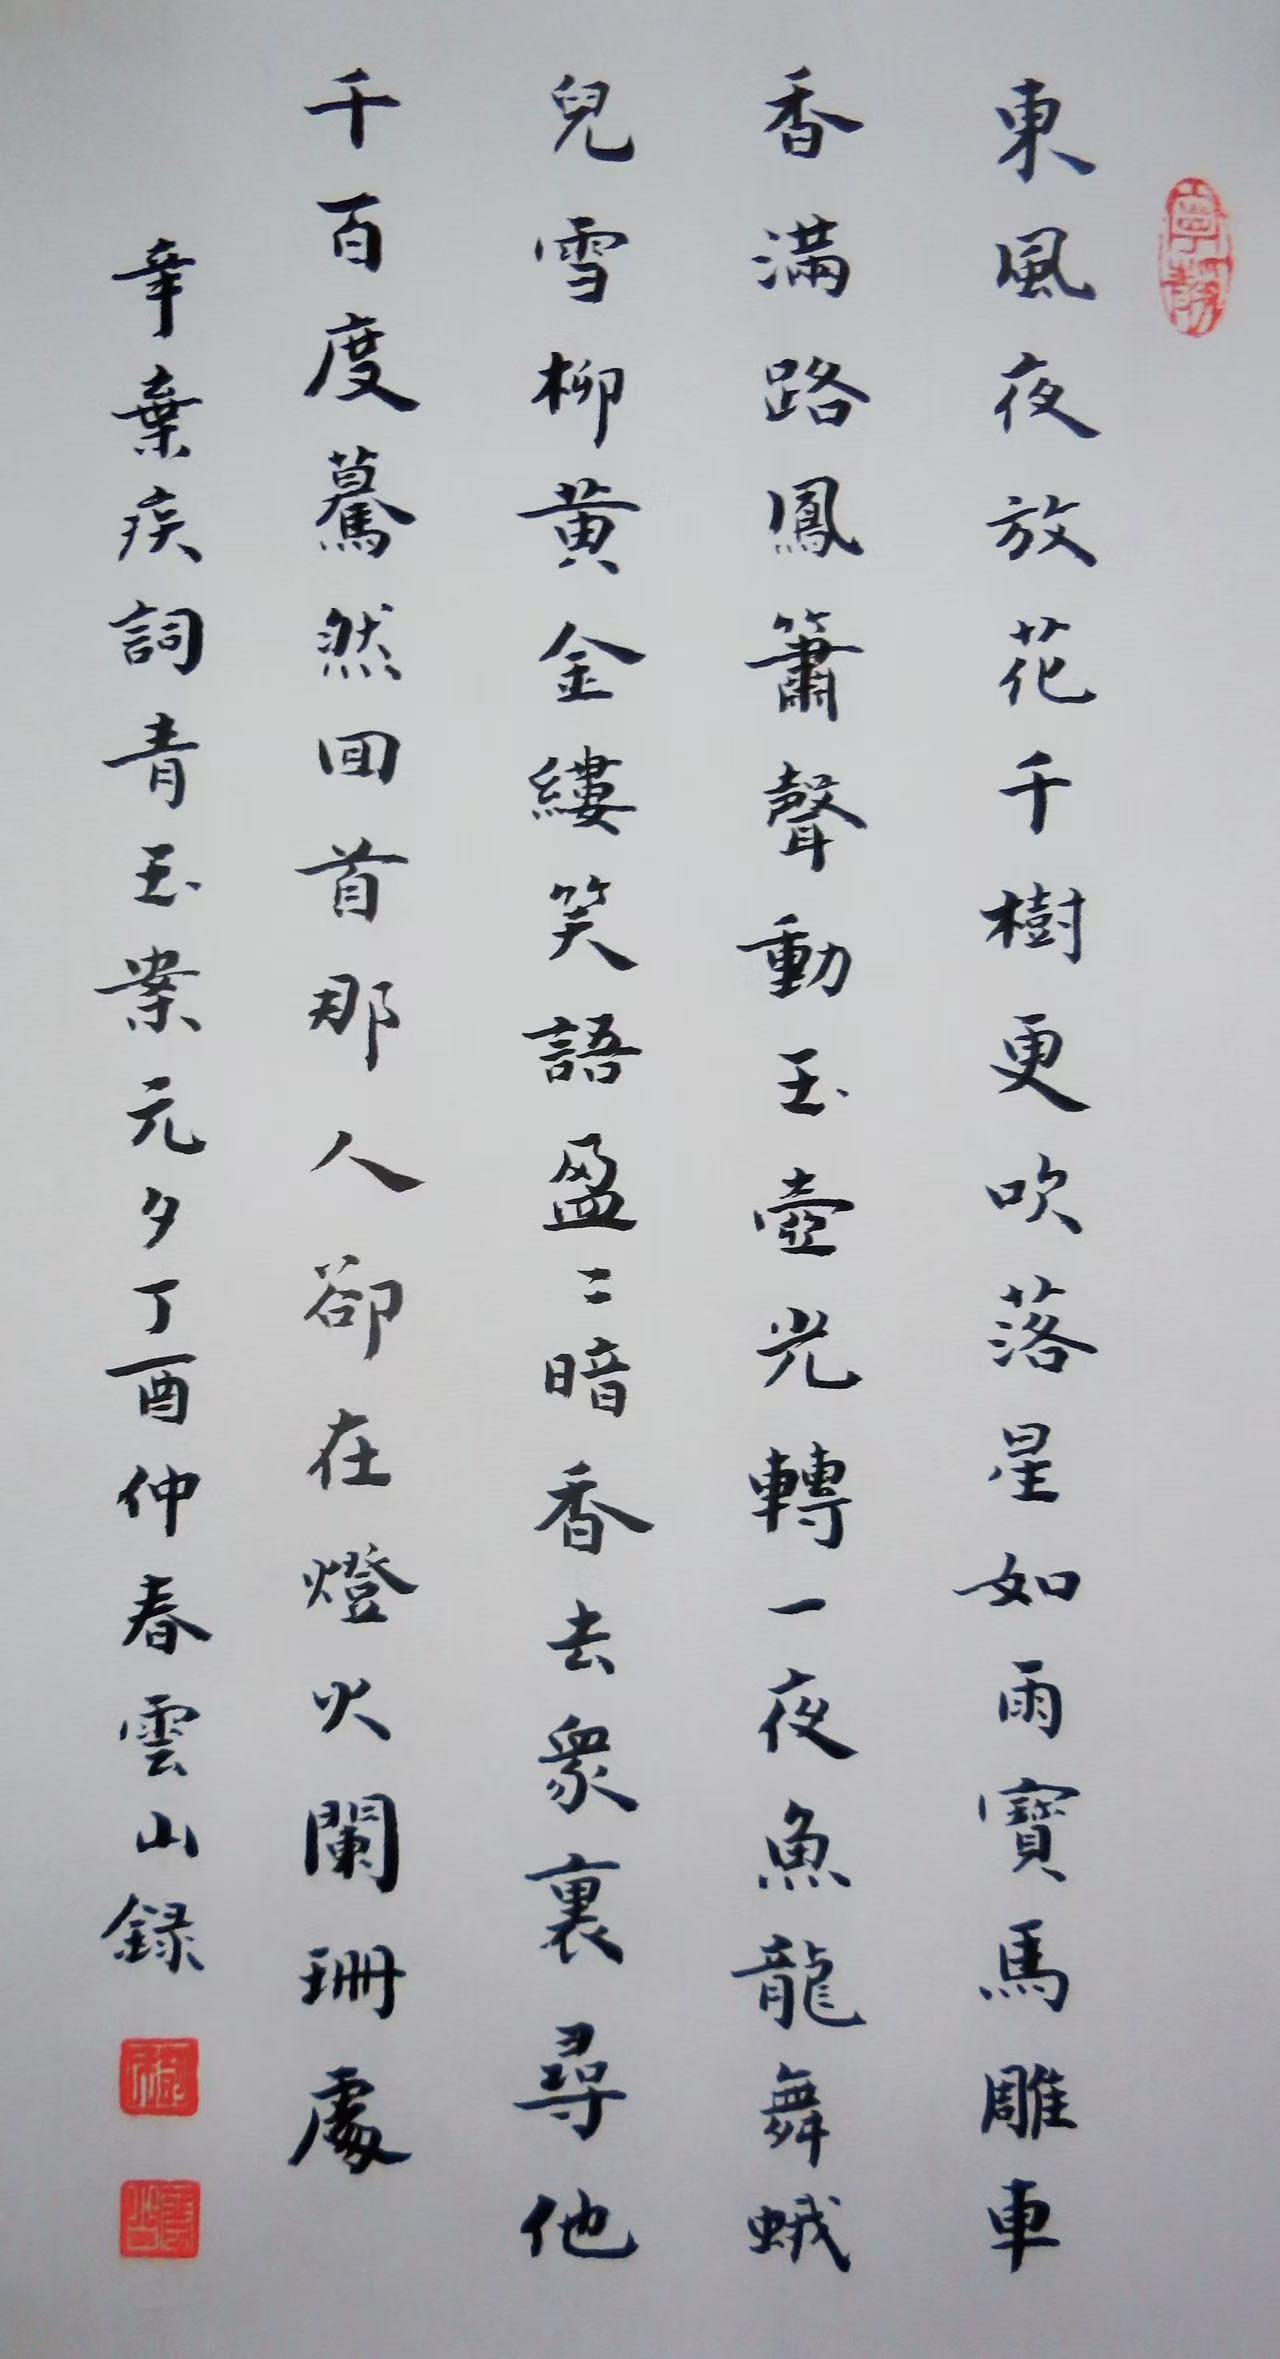 東風夜放花千樹更吹落星如雨寶馬雕車
香滿路鳳簫聲動玉壺光轉一夜魚龍舞蛾
兒雪柳黃金縷笑語盈〻暗香去衆裏尋他
千百度驀然回首那人卻在燈火闌珊處
辛棄疾詞青玉案元夕丁酉仲春雲山録
寧靜